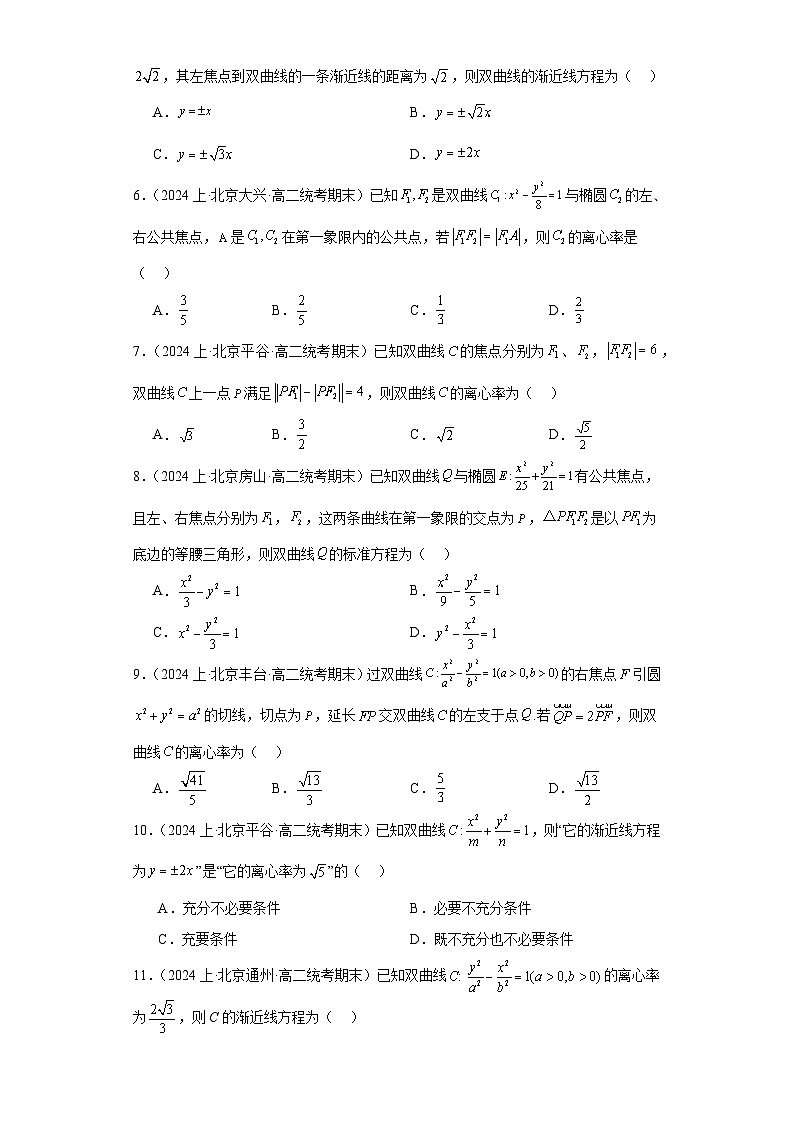 2√2，其左焦点到双曲线的一条渐近线的距离为√2，则双曲线的渐近线方程为（  ）
A．y=±x  B．y=±√2x
C．y=±√3x  D．y=±2x
6.（2024上·北京大兴·高二统考期末）已知F₁,F₂是双曲线C₁:x²-y²/8=1与椭圆C₂的左、
右公共焦点，A是C₁,C₂在第一象限内的公共点，若|F₁F₂|=|F₁A|，则C₂的离心率是
（  ）
A．3/5  B．2/5  C．1/3  D．2/3
7.（2024上·北京平谷·高二统考期末）已知双曲线C的焦点分别为F₁、F₂，|F₁F₂|=6，
双曲线C上一点P满足||PF₁|-|PF₂||=4，则双曲线C的离心率为（  ）
A．√3  B．3/2  C．√2  D．√5/2
8.（2024上·北京房山·高二统考期末）已知双曲线Q与椭圆E:x²/25+y²/21=1有公共焦点，
且左、右焦点分别为F₁，F₂，这两条曲线在第一象限的交点为P，△PF₁F₂是以PF₁为
底边的等腰三角形，则双曲线Q的标准方程为（  ）
A．x²/3-y²=1  B．x²/9-y²/5=1
C．x²-y²/3=1  D．y²-x²/3=1
9.（2024上·北京丰台·高二统考期末）过双曲线C:x²/a²-y²/b²=1(a>0,b>0)的右焦点F引圆
x²+y²=a²的切线，切点为P，延长FP交双曲线C的左支于点Q.若QP=2PF，则双
曲线C的离心率为（  ）
A．√41/5  B．√13/3  C．5/3  D．√13/2
10.（2024上·北京平谷·高二统考期末）已知双曲线C:x²/m+y²/n=1，则“它的渐近线方程
为y=±2x”是“它的离心率为√5”的（  ）
A．充分不必要条件  B．必要不充分条件
C．充要条件  D．既不充分也不必要条件
11.（2024上·北京通州·高二统考期末）已知双曲线C: y²/a²-x²/b²=1(a>0,b>0)的离心率
为2√3/3，则C的渐近线方程为（  ）